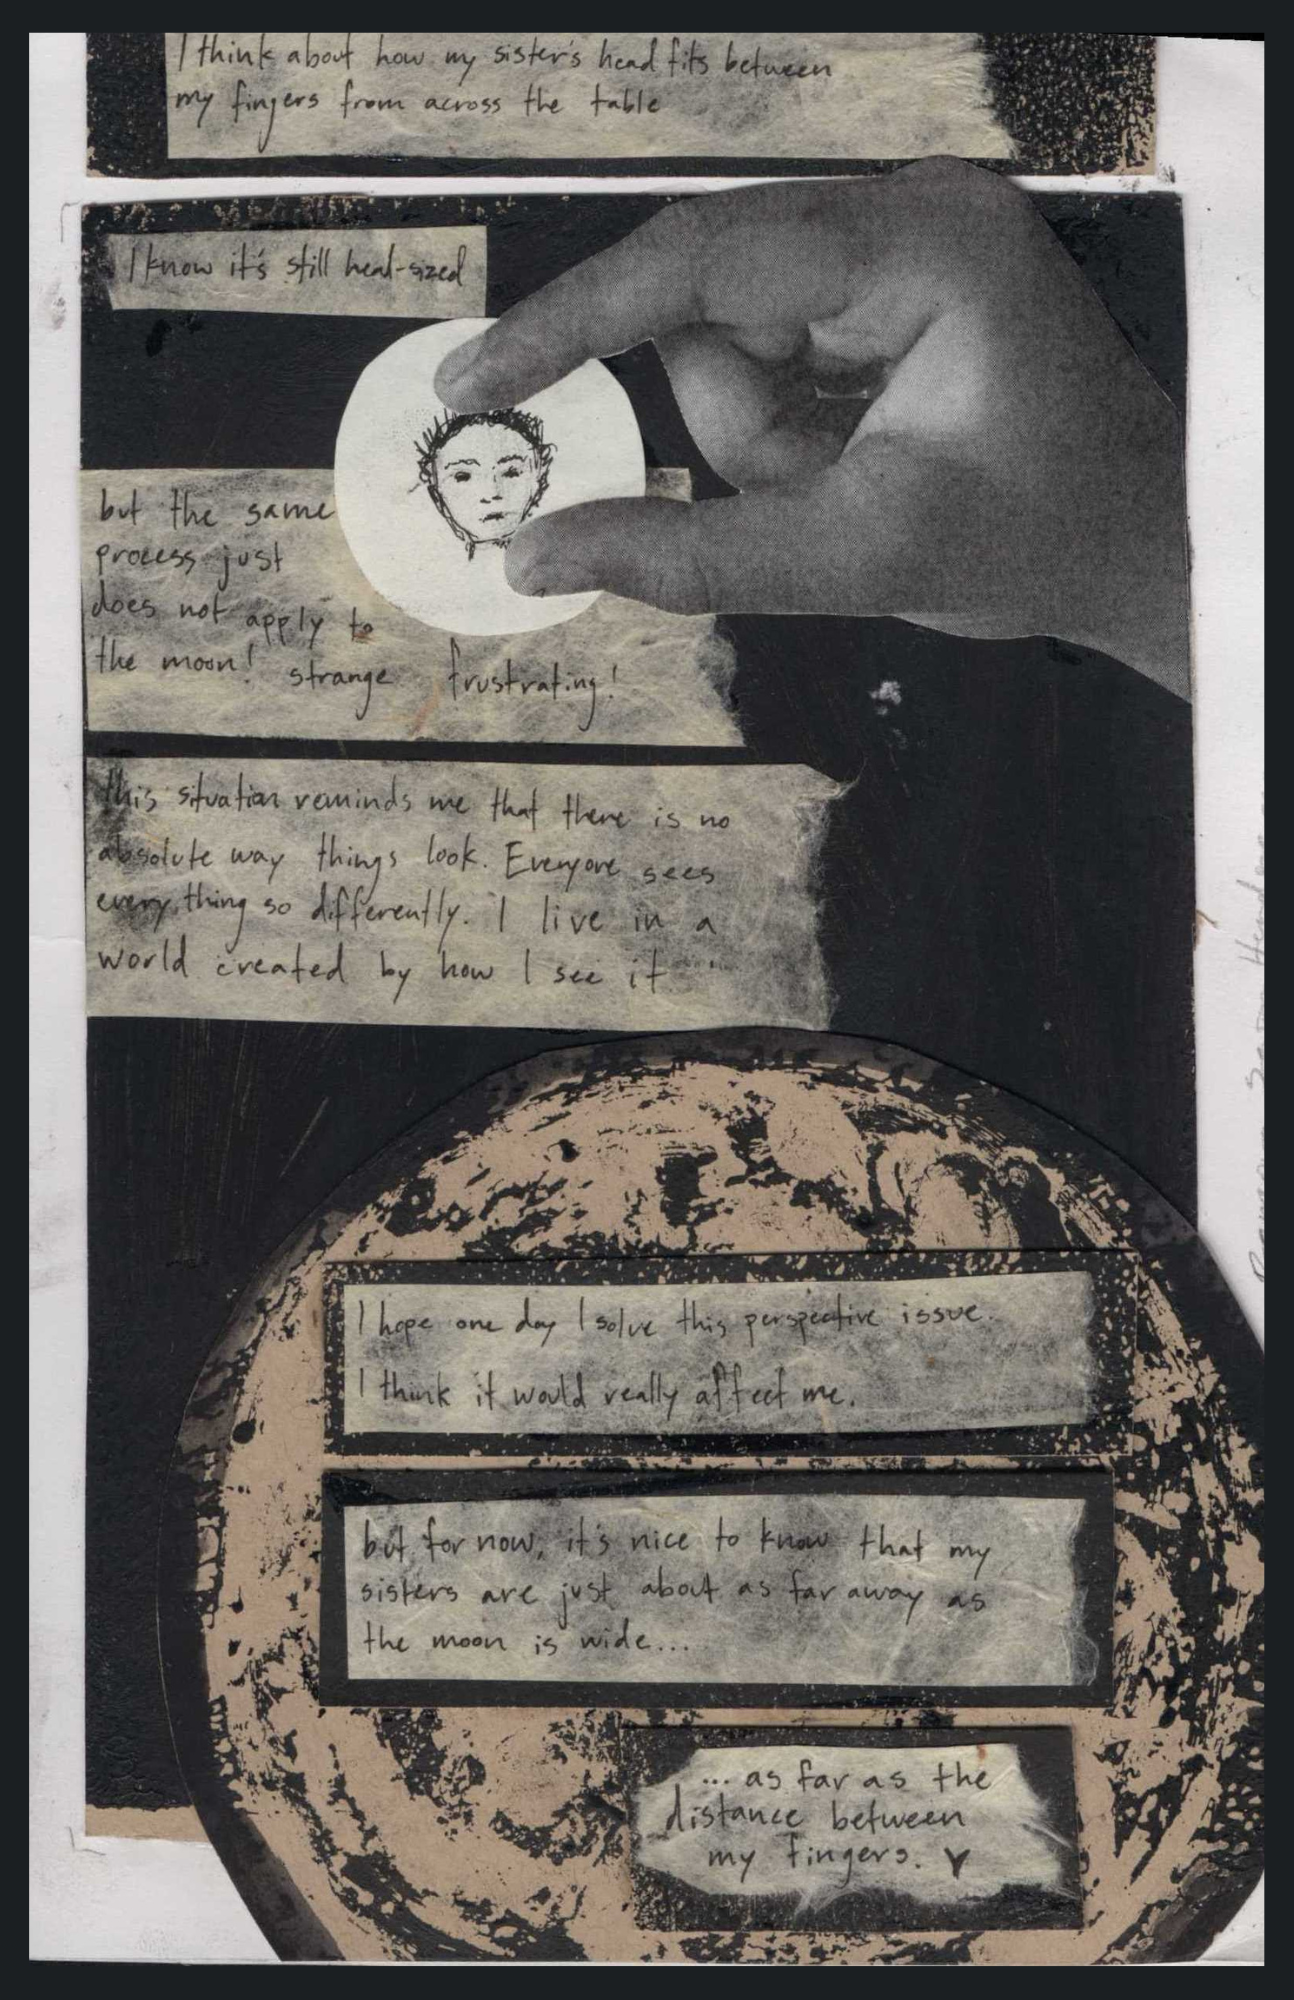 I think about how my sister's head fits between
my fingers from across the table
I know it's still head-sized
but the same
process just
does not apply to
the moon! strange frustrating!
this situation reminds me that there is no
absolute way things look. Everyone sees
everything so differently. I live in a
world created by how I see it
I hope one day I solve this perspective issue.
I think it would really affect me.
but for now, it's nice to know that my
sisters are just about as far away as
the moon is wide...
... as far as the
distance between
my fingers.